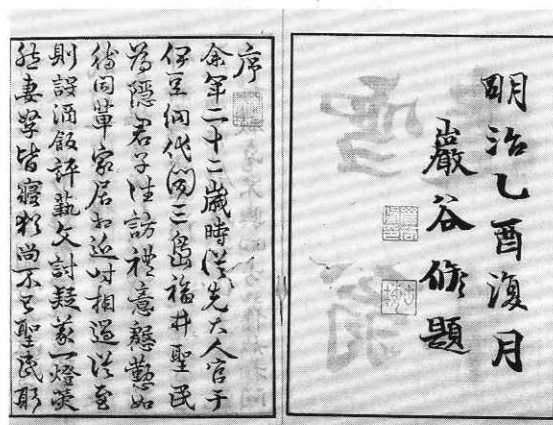 明治乙酉復月
巖谷修題
序
余年二十二歲時從先大人官于
伊豆網代聞三島福井聖民
為隱君子往訪禮意慇懃如
待同輩家居相近時相過從至
則設酒飯評藝文討疑義一燈熒
然妻孥皆寢猶尚不已聖民